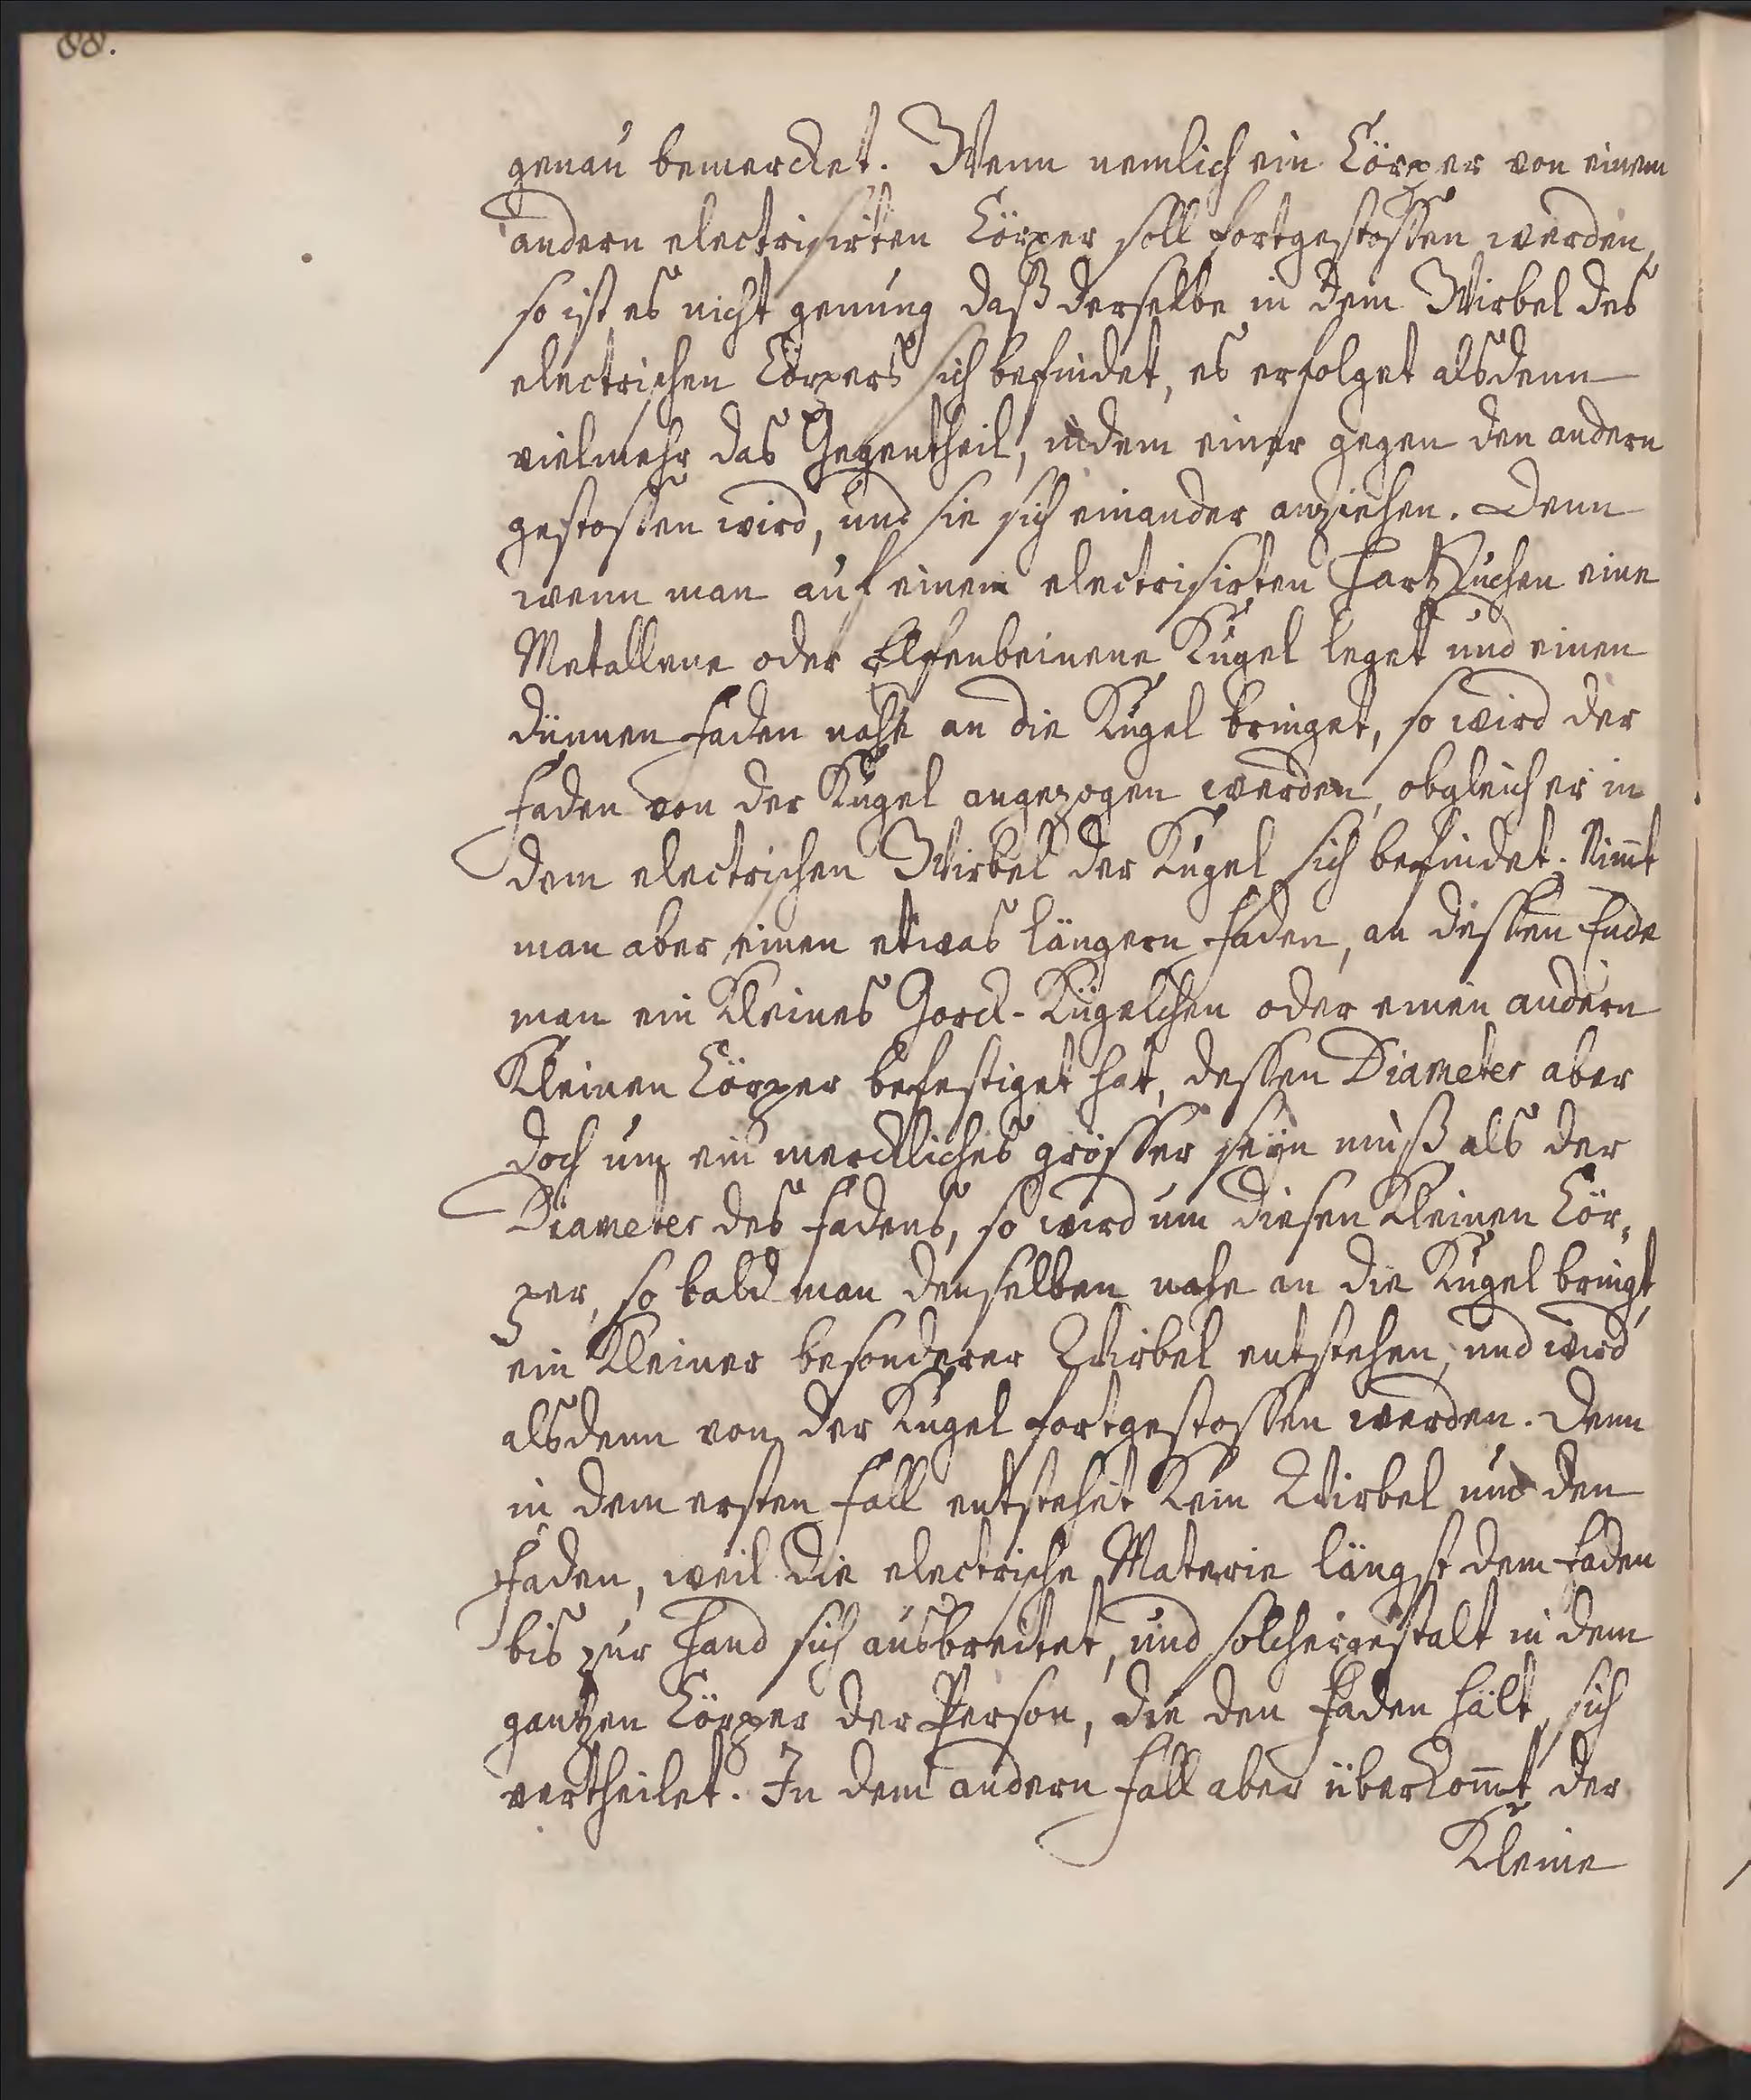 88.
genau bemercket. Wenn nemlich ein Cörper von einem
andern electrisirten Cörper soll fortgestossen werden,
so ist es nicht genung daß derselbe in dem Wirbel des
electrischen Cörpers sich befindet, es erfolget alsdenn
vielmehr das Gegentheil, indem einer gegen den andern
gestossen wird, und sie sich einander anziehen. Denn
wenn man auf einem electrisirten Hartzkuchen eine
Metallene oder Elfenbeinene Kugel leget und einen
dünnen Faden nahe an die Kugel bringet, so wird der
Faden von der Kugel angezogen werden, obgleich er in
dem electrischen Wirbel der Kugel sich befindet. Nim̅t
man aber einen etwas längern Faden, an dessen Ende
man ein kleines Gorck-Kügelchen oder einen andern
kleinen Cörper befestiget hat, dessen Diameter aber
doch um ein merckliches grösser seÿn muß als der
Diameter des Fadens, so wird um diesen kleinen Cör„
per, so bald man denselben nahe an die Kugel bringt,
ein kleiner besonderer Wirbel entstehen, und wird
alsdenn von der Kugel fortgestossen werden. Denn
in dem ersten Fall entstehet kein Wirbel um den
Faden, weil die electrische Materie längst dem Faden
bis zur Hand sich ausbreitet, und solchergestalt in dem
gantzen Cörper der Person, die den Faden hält, sich
vertheilet. In dem andern Fall aber überkom̅t der
kleine